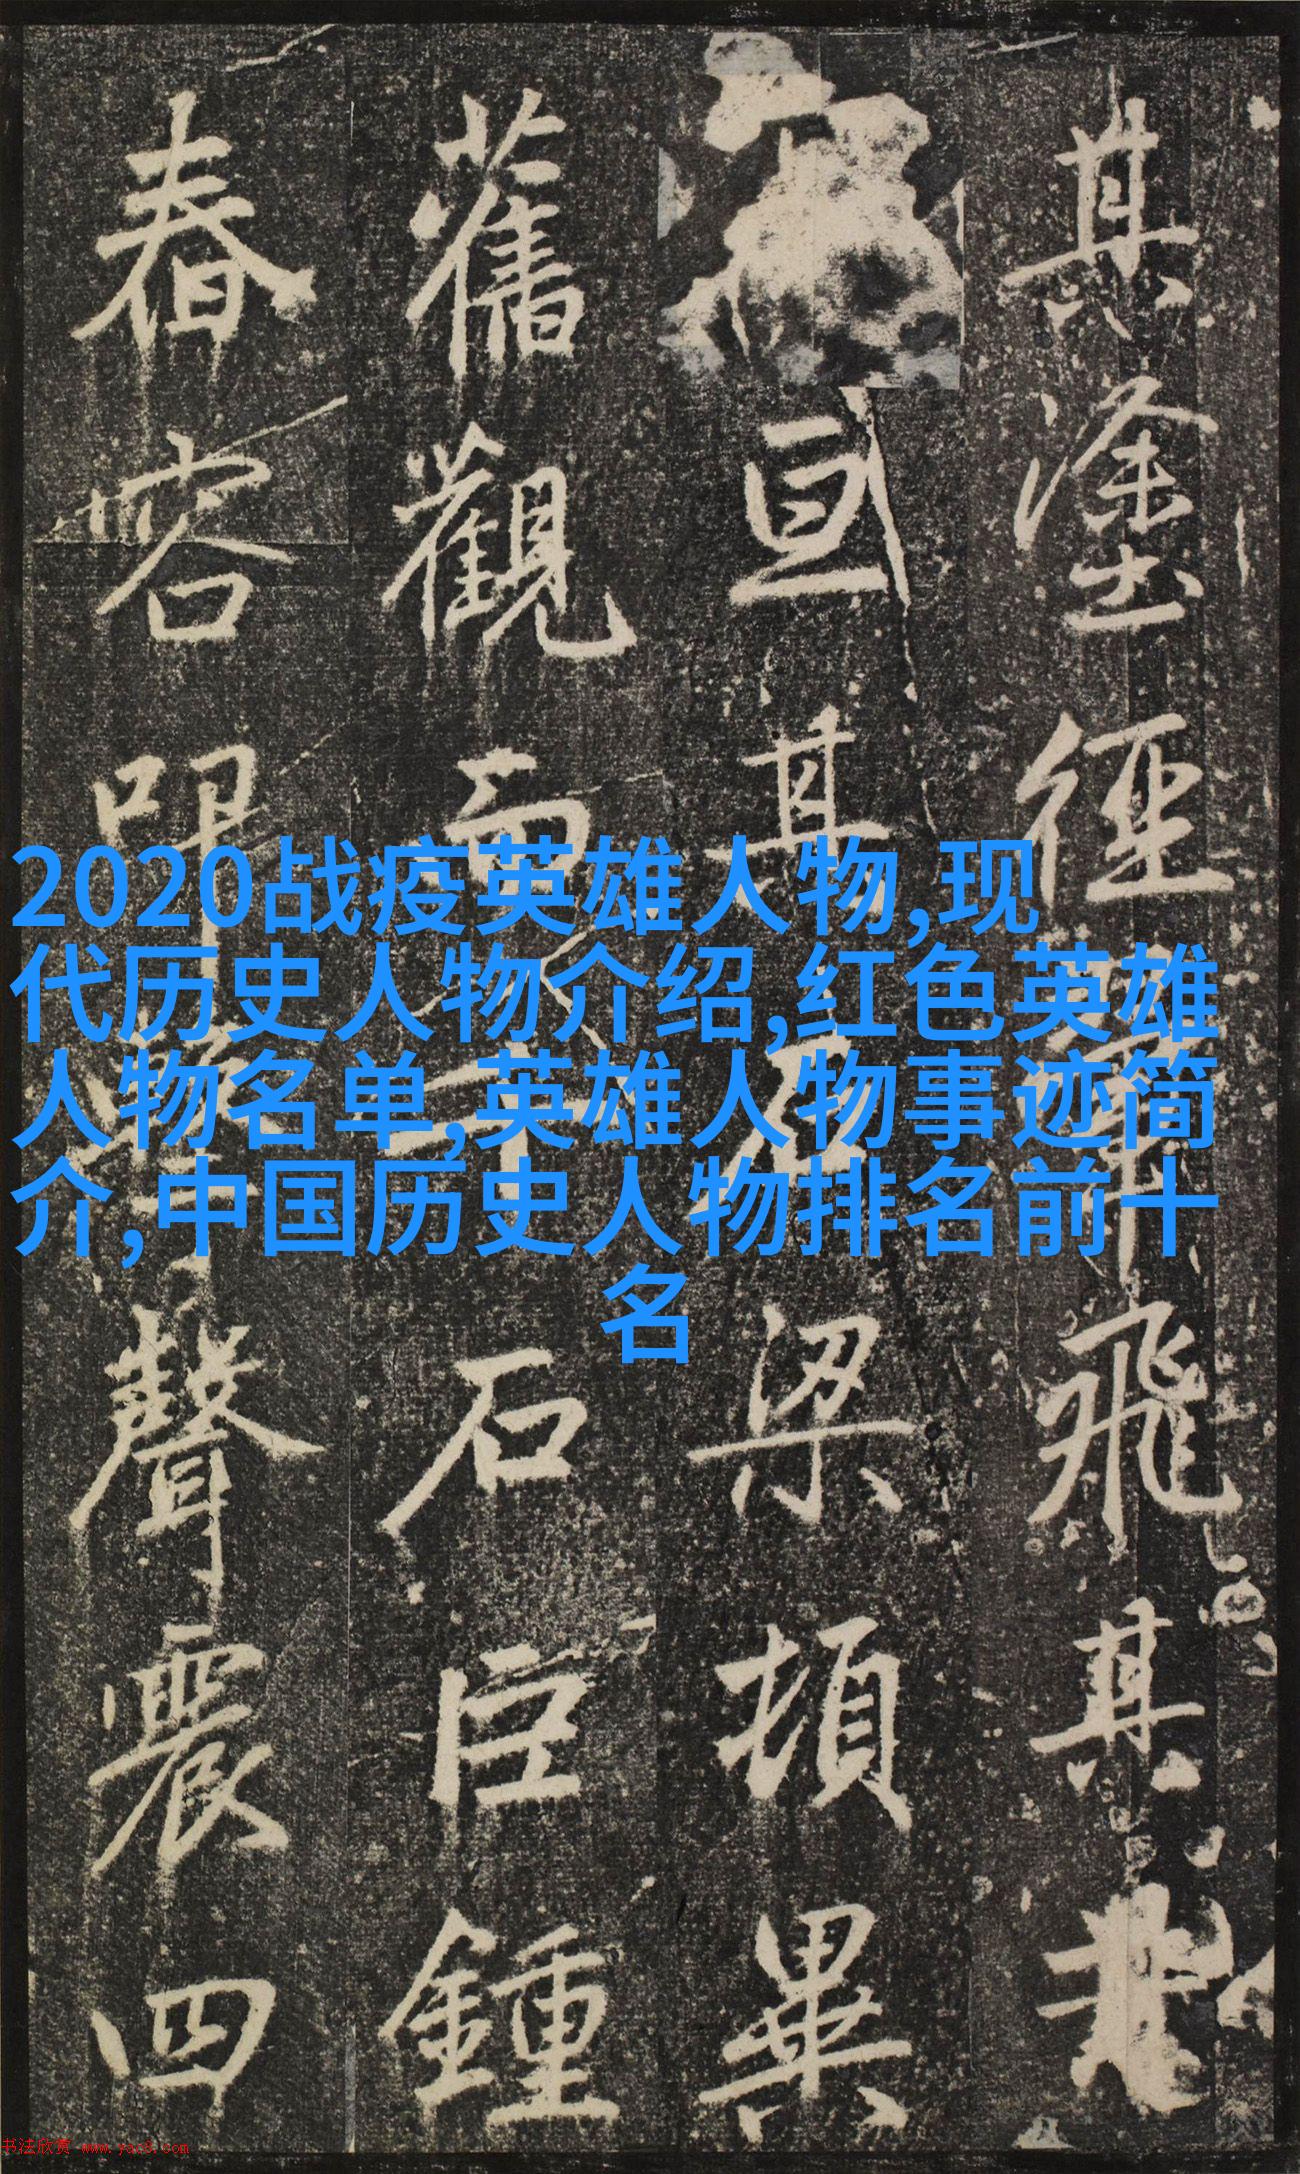 其塗徑飛其
亘其梁頓異
舊觀石巨鍾
春容聲震四
2020战疫英雄人物,现
代历史人物介绍,红色英雄
人物名单,英雄人物事迹简
介,中国历史人物排名前十
名
书法欣赏 www.yac8.com